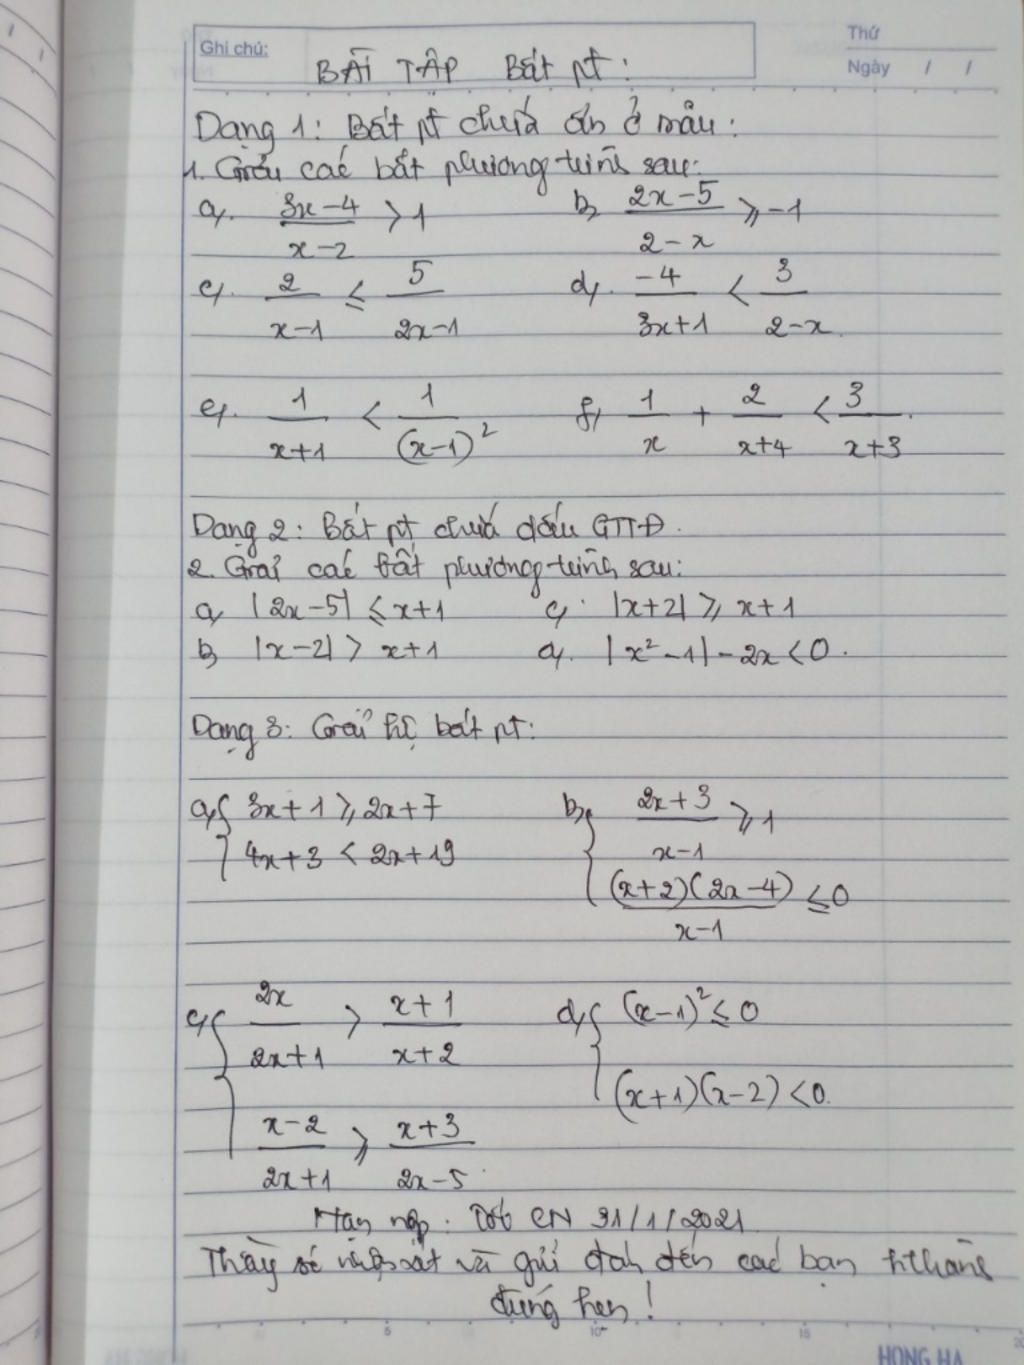 Ghi chú:
Thứ
Ngày / /
BÀI TẬP Bất pt:
Dạng 1: Bất pt chứa ẩn ở mẫu:
1. Giải các bất phương trình sau:
a, (3x-4)/(x-2) > 1 b, (2x-5)/(2-x) ≥ -1
c, 2/(x-1) ≤ 5/(2x-1) d, -4/(3x+1) < 3/(2-x)
e, 1/(x+1) < 1/(x-1)² f, 1/x + 2/(x+4) < 3/(x+3)
Dạng 2: Bất pt chứa dấu GTTĐ.
2. Giải các bất phương trình sau:
a, |2x-5| ≤ x+1 c, |x+2| ≥ x+1
b, |x-2| > x+1 d, |x²-1| - 2x < 0.
Dạng 3: Giải hệ bất pt:
a, { 3x+1 ≥ 2x+7 b, { (2x+3)/(x-1) ≥ 1
4x+3 < 2x+19 (x+2)(2x-4)/(x-1) ≤ 0
c, { 2x/(2x+1) > (x+1)/(x+2) d, { (x-1)² ≤ 0
(x-2)/(2x+1) ≥ (x+3)/(2x-5) (x+1)(x-2) < 0.
Hạn nộp: CN 31/1/2021
Thầy sẽ và gửi đến các bạn
đúng hẹn!
5 10 15 20
HONG HA